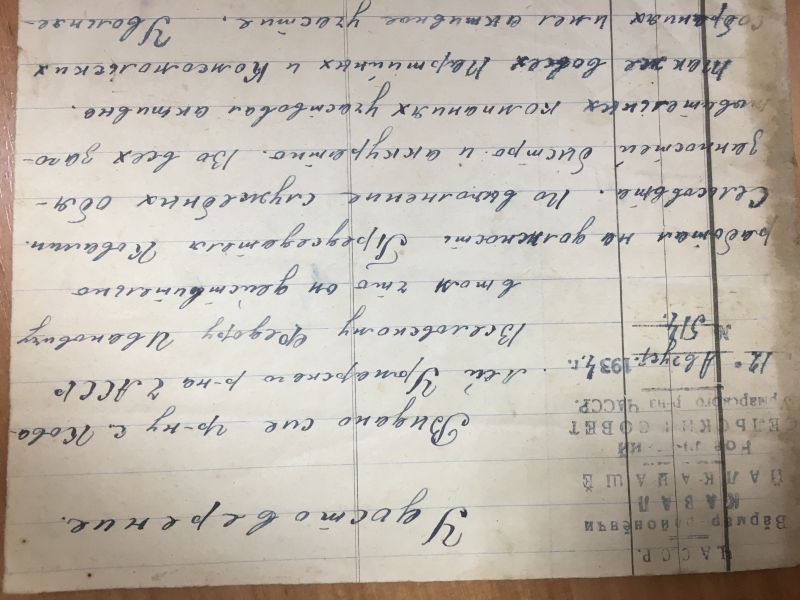 ЧАССР.
Вӑрмар районӗнчи
КАВАЛ
ЯЛ КАНАШӖ
СЕЛЬСКИЙ СОВЕТ
Урмарского р-на ЧАССР.
12. Август. 1934 г.
№ 514.
Удостоверение.
Видано сие гр-ну с. Кова-
лей Урмарского р-на ЧАССР
Веселовскому Федору Ивановичу
в том что он действительно
работал на должности Председателя Ковалин.
Сельсовета. По выполнение служебных обя-
занностей быстро и аккуратно. Во всех заго-
товительных компаниях участвовал активно.
Также вовсех Партийных и Комсомольских
собраниях имел активное участие. Уволине-